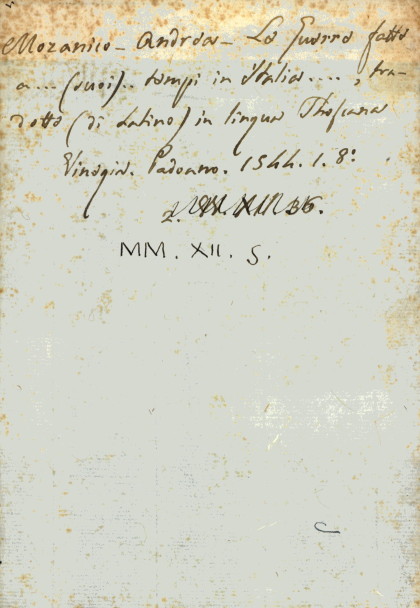 Mozanico - Andrea - Le Guerre fatte
a ... (suoi) .. tempi in Italia ...., tra-
dotte (di Latino) in lingua Thoscana
Vinegia. Padoano. 1544. 1. 8º.
MM. XII. S.
C